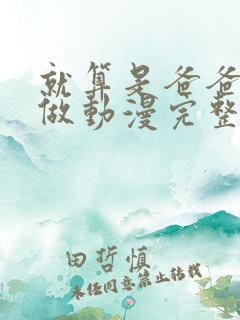 就算是爸爸
做動漫完整
田哲慎
未经同意禁止转载